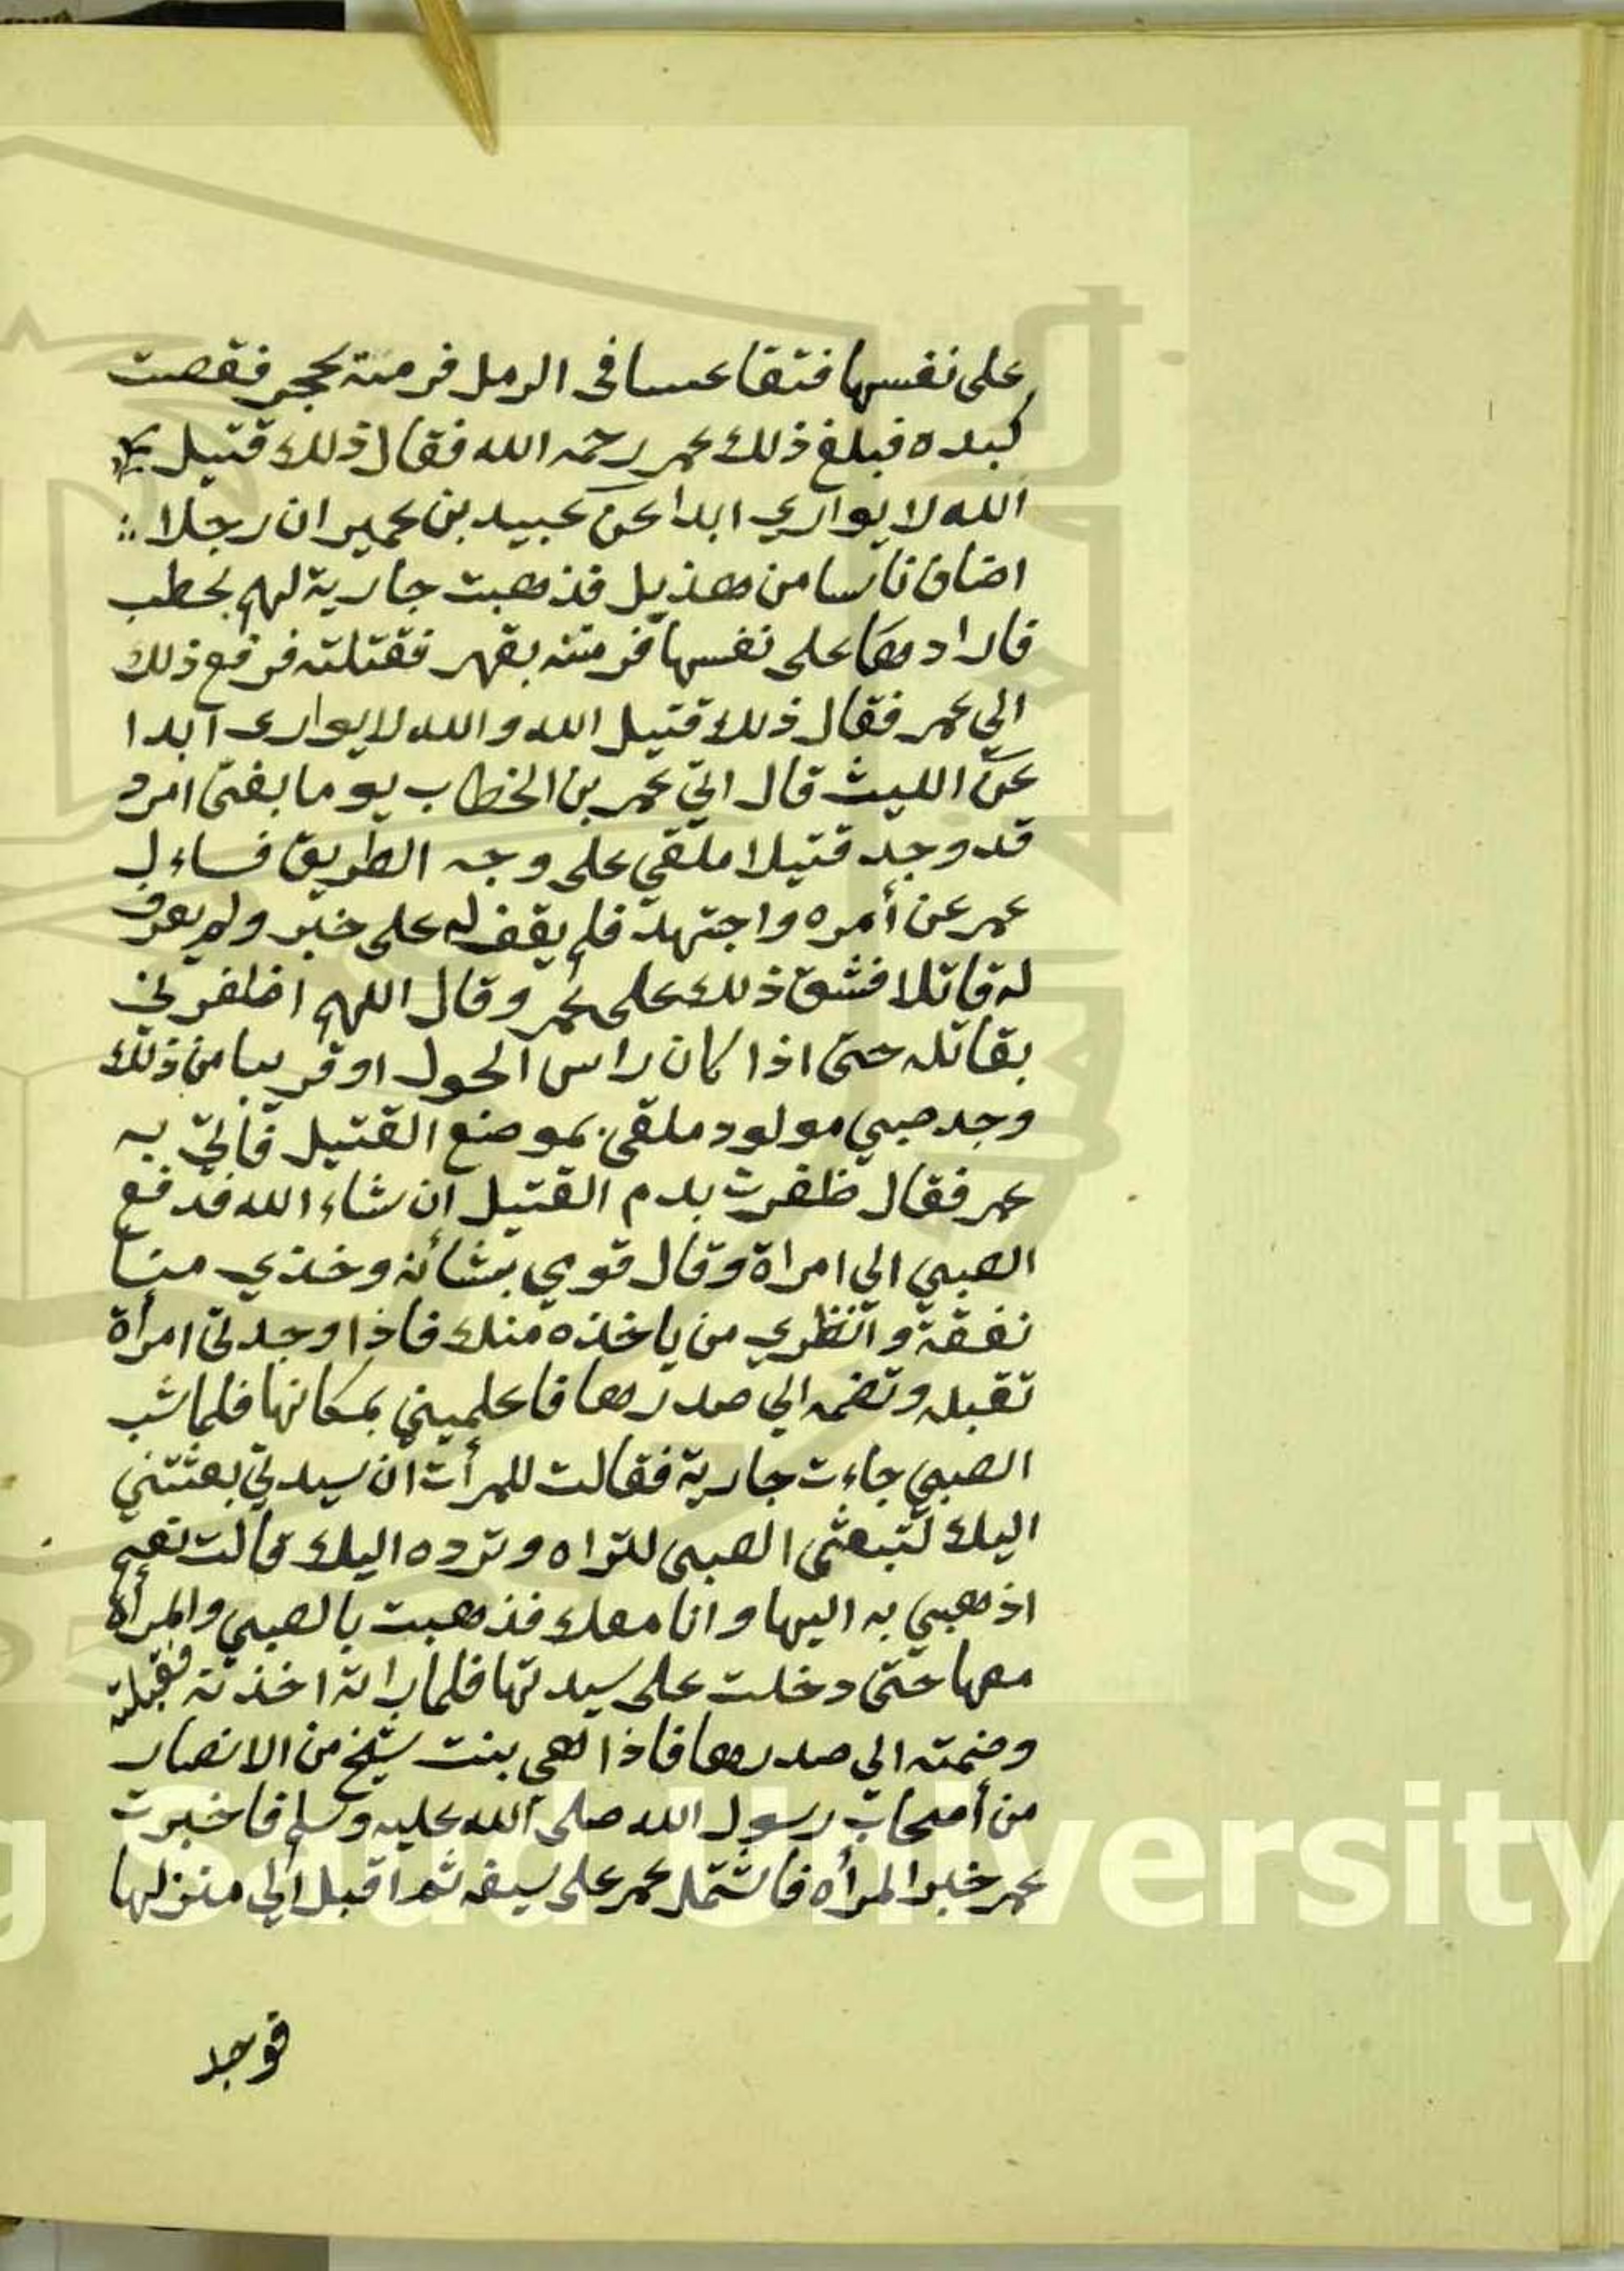 على نفسها فتقاعسا فى الرمل فرمته بحجر فقصت
كبده فبلغ ذلك عمر رحمه الله فقال ذلك قتيل
الله لا يواري ابدا عن عبيد بن عمير ان رجلا
اضاف ناسا من هذيل فذهبت جارية لهم بحطب
فارادها على نفسها فرمته بقهر فقتلته فرفع ذلك
الي عمر فقال ذلك قتيل الله والله لا يوارى ابدا
عن الليث قال اتي عمر بن الخطاب يوما بفتى امرد
قد وجد قتيلا ملقي على وجه الطريق فساءل
عمر عن أمره واجتهد فلم يقف له على خبر ولم يعرف
له قاتلا فشق ذلك على عمر وقال اللهم اظفرني
بقاتله حتى اذا كان راس الحول او قريبا من ذلك
وجد صبي مولود ملقى بموضع القتيل فأتي به
عمر فقال ظفرت بدم القتيل ان شاء الله فدفع
الصبي الي امراة وقال قومي بشأنه وخذي منا
نفقة وانظري من ياخذه منك فاذا وجدتى امرأة
تقبله وتضمه الي صدرها فاعلميني بمكانها فلما شب
الصبي جاءت جارية فقالت للمرأت ان سيدتي بعثتني
اليك لتبعثى الصبى لتراه وترده اليك قالت نعم
اذهبي به اليها وانا معك فذهبت بالصبي والمرأة
معها حتى دخلت على سيدتها فلما راته اخذته فقبلته
وضمته الي صدرها فاذا هي بنت شيخ من الانصار
من أصحاب رسول الله صلى الله عليه وسلم فاخبرت
عمر خبر المرأه فاشتمل عمر على سيفه ثم اقبل الي منزلها
فوجد